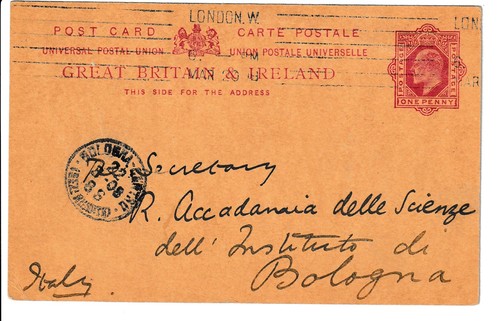 LONDON.W.
POST CARD CARTE POSTALE
UNIVERSAL POSTAL UNION UNION POSTALE UNIVERSELLE
GREAT BRITAIN & IRELAND
THIS SIDE FOR THE ADDRESS
POSTAGE POSTAGE
ONE PENNY
LON
BOLOGNA
Secretary
R. Accadamaia delle Scienze
dell' Instituto di
Bologna
Italy